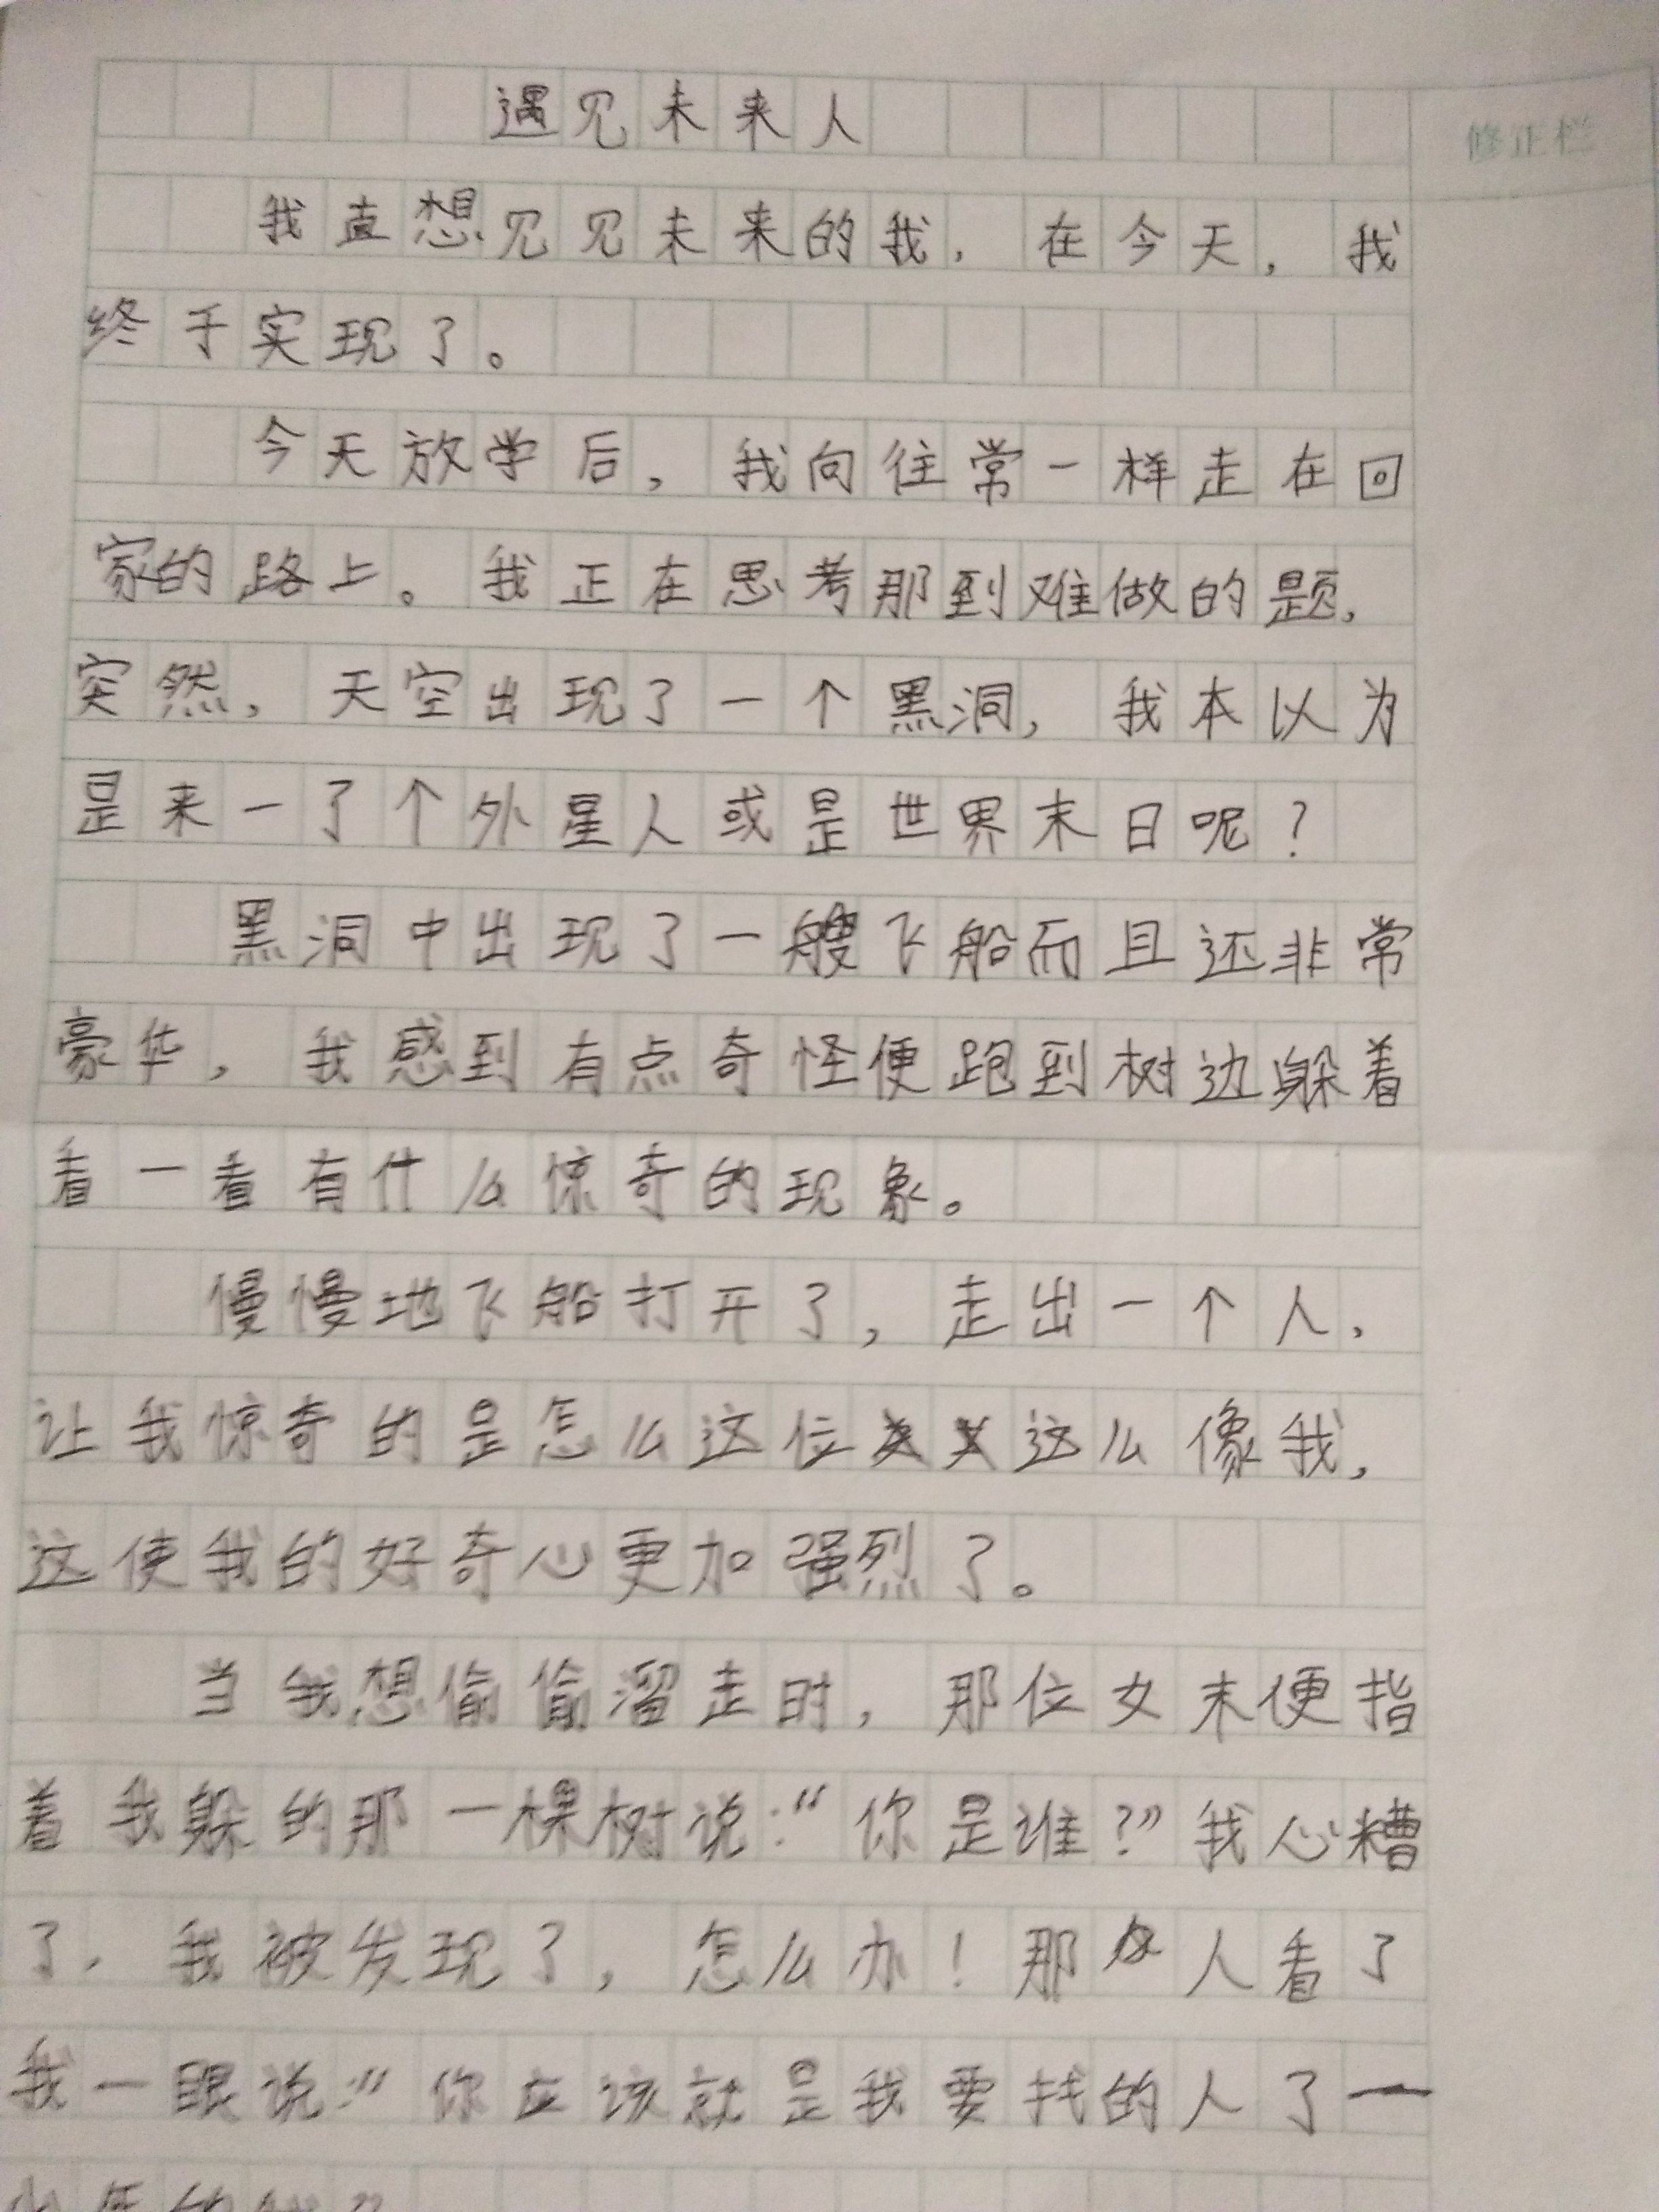 遇见未来人
修正栏
我直想见见未来的我，在今天，我
终于实现了。
今天放学后，我向往常一样走在回
家的路上。我正在思考那到难做的题，
突然，天空出现了一个黑洞，我本以为
是来一了个外星人或是世界末日呢？
黑洞中出现了一艘飞船而且还非常
豪华，我感到有点奇怪便跑到树边躲着
看一看有什么惊奇的现象。
慢慢地飞船打开了，走出一个人，
让我惊奇的是怎么这位这么像我，
这使我的好奇心更加强烈了。
当我想偷偷溜走时，那位女末便指
着我躲的那一棵树说：“你是谁？”我心糟
了，我被发现了，怎么办！那人看了
我一眼说：“你应该就是我要找的人了一